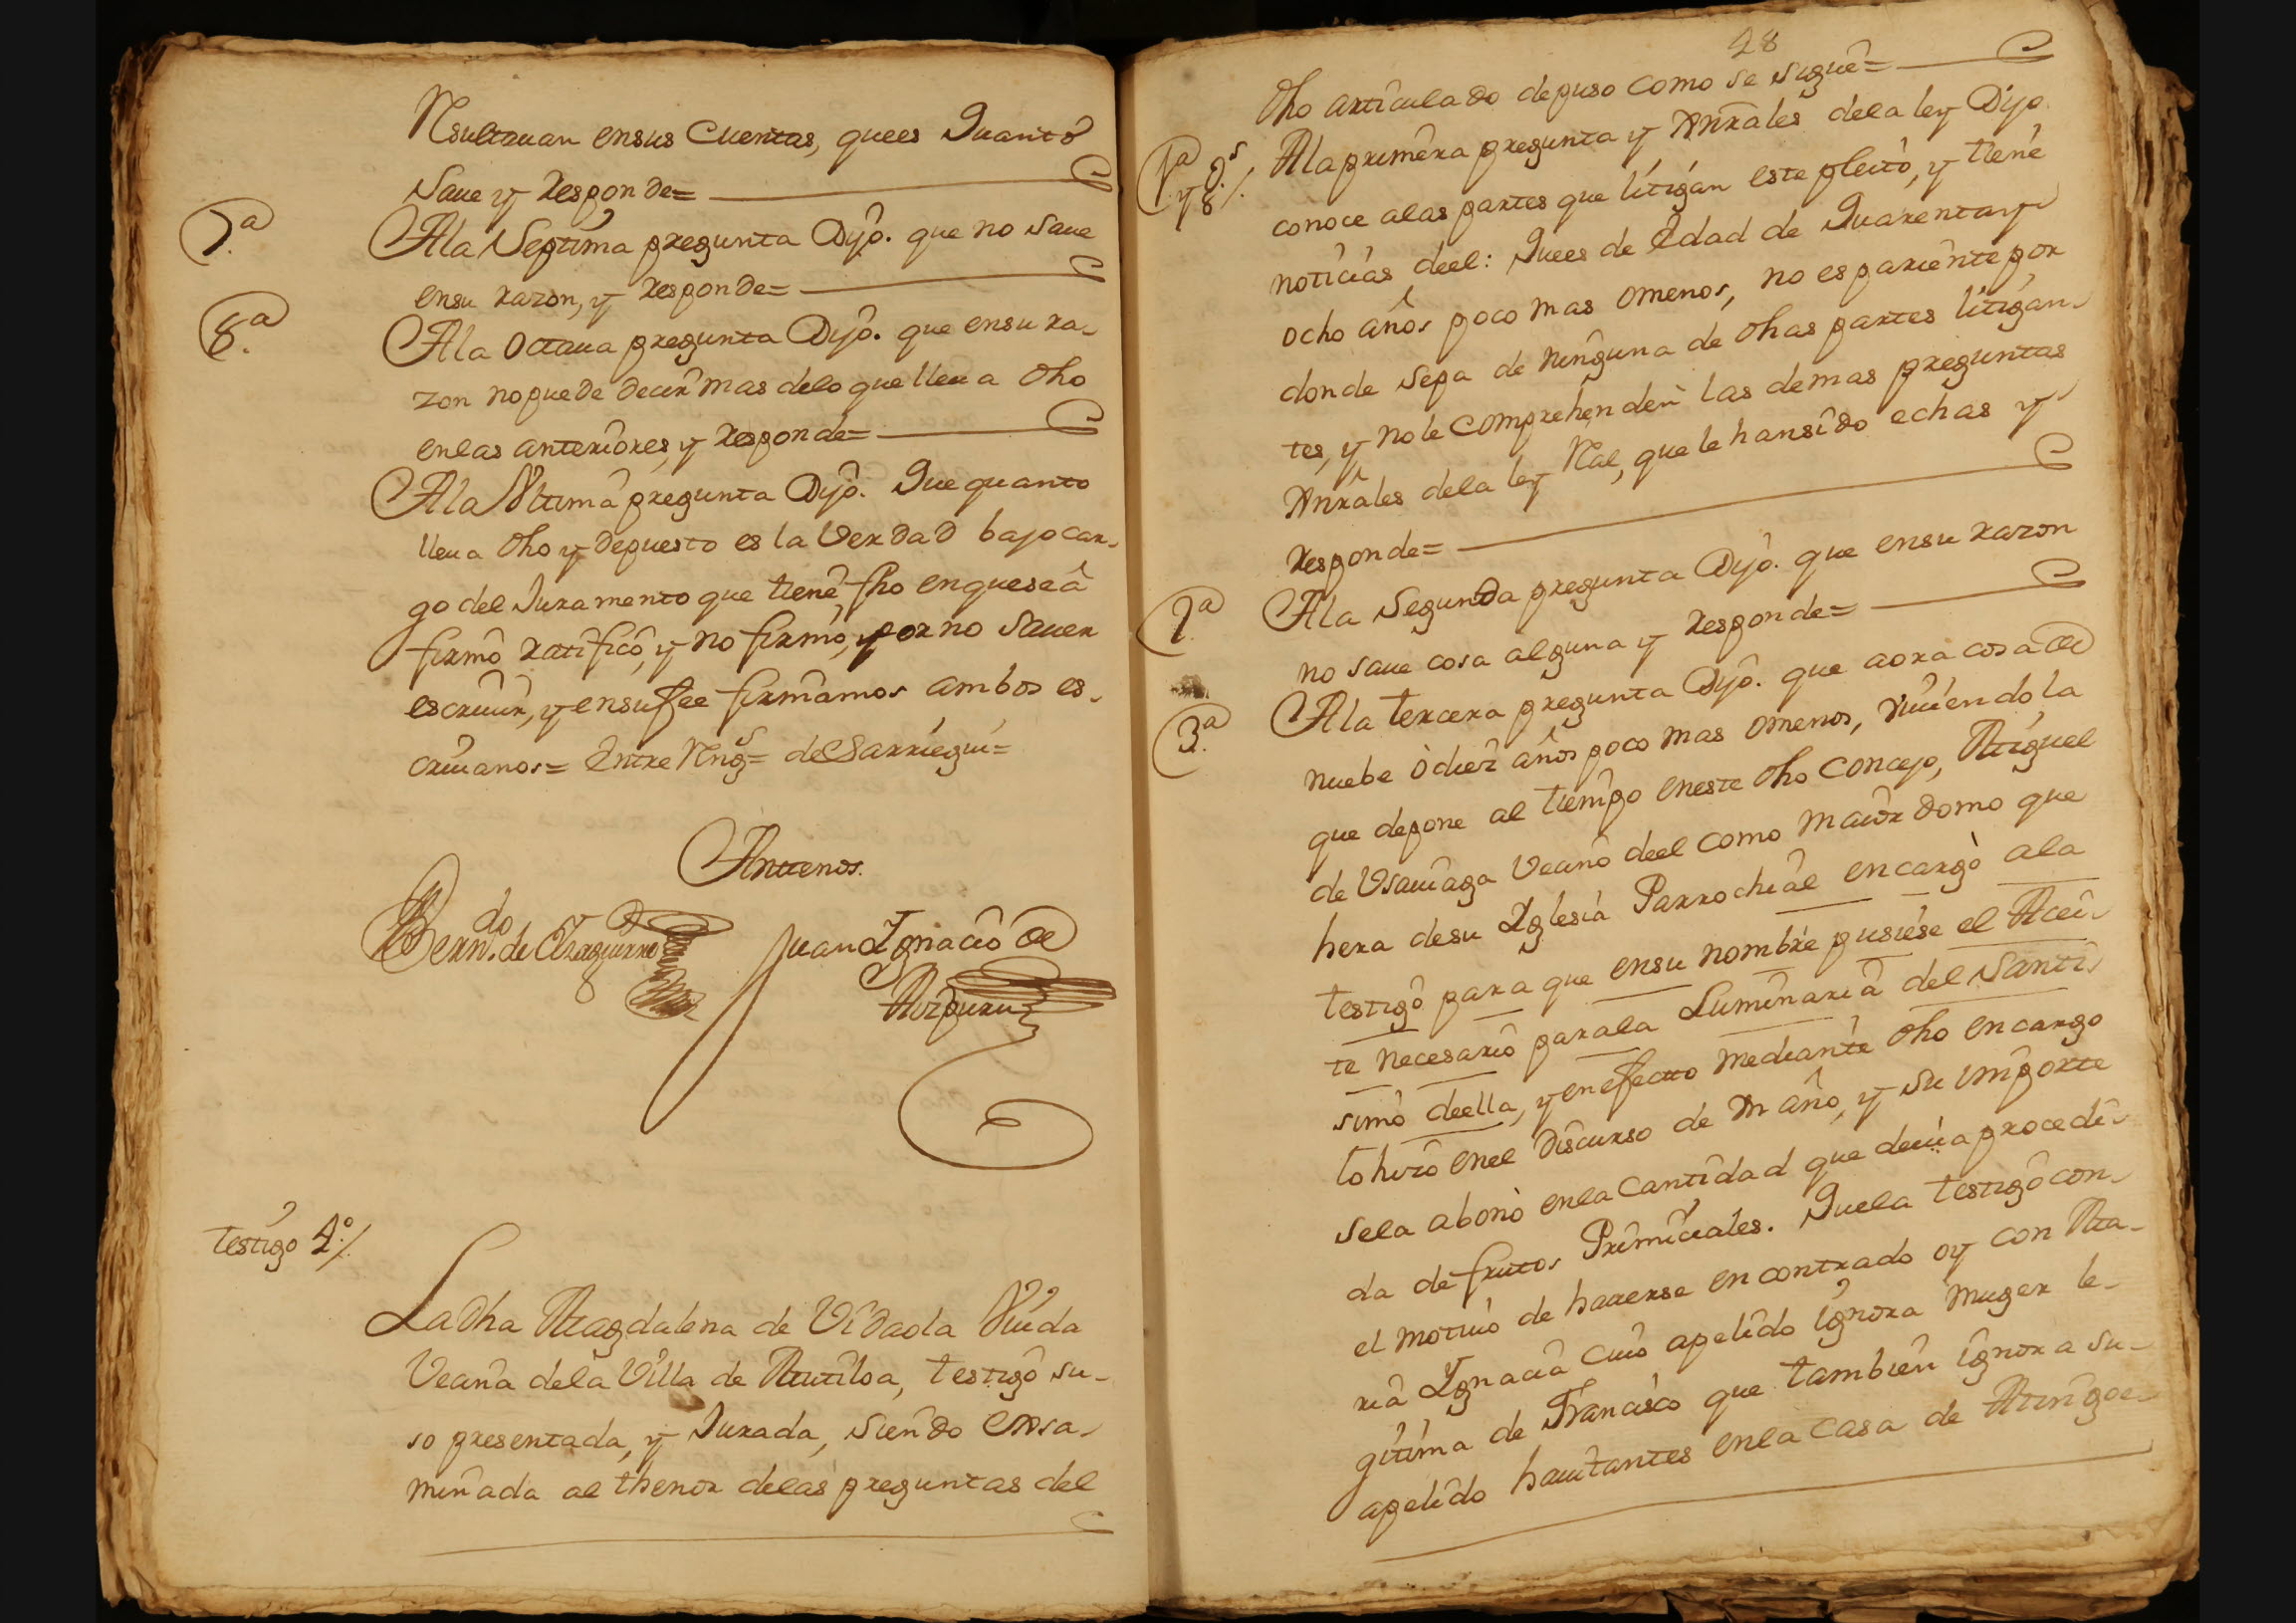 Resultauan ensus Cuentas, quees Quanto
Saue y Responde=
7.ª
Ala Septima pregunta Dijo. que no Saue
ensu razon, y Responde=
8.ª
Ala Octaua pregunta Dijo. que ensu ra-
zon nopuede decir mas delo que lleua dho
enlas anteriores, y Responde=
Ala Vltima pregunta Dijo. Que quanto
lleua dho y depuesto es la Verdad bajo car-
go del Juramento que tiene fho enquesea
firmo ratifico, y no firmo, por no Sauer
escriuir, y ensufee firmamos ambos es-
criuanos= Entre Rengs= de Sarriegui=
Antenos.
Bern.do de Ozaguirre
Juan Ygnacio de
Aizpuru
testigo 4.º/.
La dha Magdalena de Vidaola Viuda
Veçina dela Villa de Mutiloa, testigo su-
so presentada, y Jurada, Siendo Exsa-
minada al thenor delas preguntas del
48
dho articulado depuso como se sigue=
1.ª y g.s 8/.
Ala primera pregunta y Gnrales dela ley Dijo.
conoce alas partes que litigan este pleito, y tiene
noticias deel: Quees de Edad de Quarentay
ocho años poco mas omenos, no es pariente por
donde Sepa de ninguna de dhas partes litigan-
tes, y nole comprehenden las demas preguntas
Gnrales dela ley Real, que le hansido echas y
Responde=
2.ª
Ala Segunda pregunta Dijo. que ensu razon
no saue cosa alguna y Responde=
3.ª
Ala tercera pregunta Dijo. que aora cosa de
nuebe ò diez años poco mas omenos, viuiendo la
que depone al tiempo eneste dho Concejo, Miguel
de Vsauiaga Veçino deel como maiordomo que
hera desu Yglesia Parrochial encargò ala
testigo para que ensu nombre pusiese el Acei-
te necesario parala Luminaria del Santi-
simo deella, y enefecto mediante dho encargo
lo hizo enel discurso de vn año, y su importe
sela abonò enla cantidad que deuia procedi-
da de frutos Primiciales. Quela testigo con
el motiuo de hauerse encontrado oy con Ma-
ria Ygnacia cuio apelido ignora muger le-
gitima de Francisco que tambien ignora su
apelido hauitantes enla casa de Mingoe-